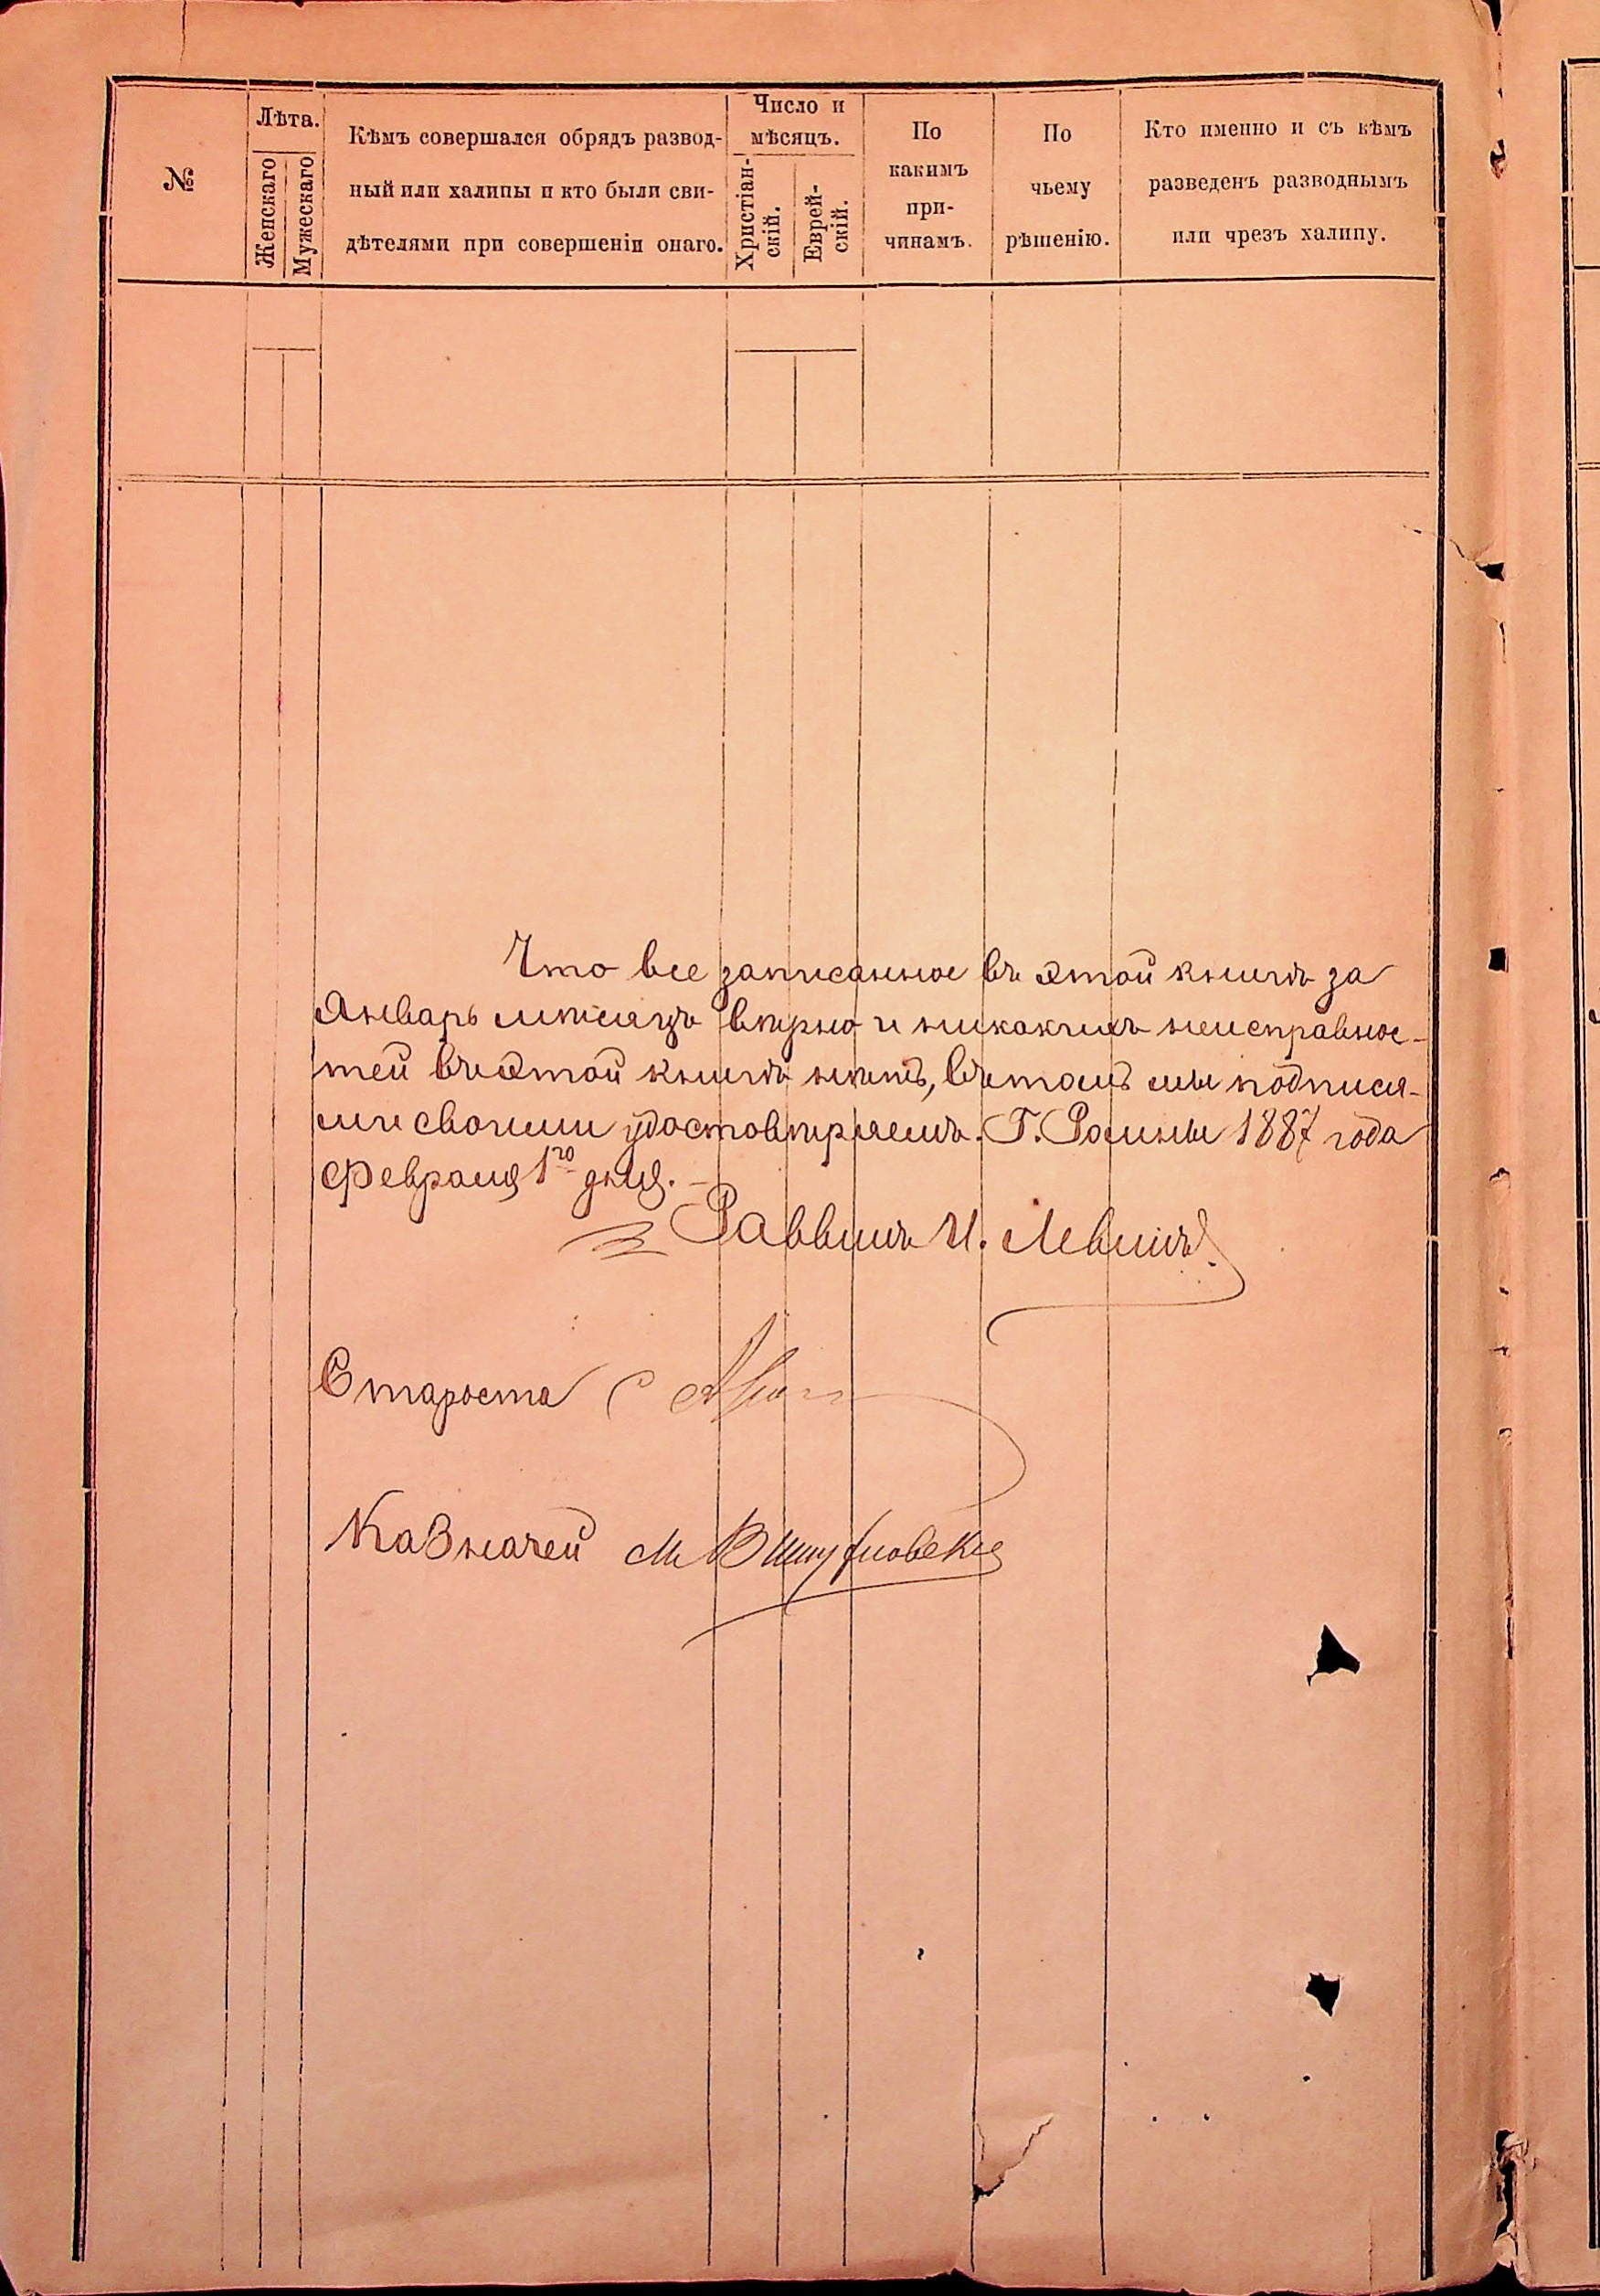 №
Лѣта.
Женскаго
Мужескаго
Кѣмъ совершался обрядъ развод-
ный или халицы и кто были сви-
дѣтелями при совершеніи онаго.
Число и
мѣсяцъ.
Христіан-
скій.
Еврей-
скій.
По
какимъ
при-
чинамъ.
По
чьему
рѣшенію.
Кто именно и съ кѣмъ
разведенъ разводнымъ
или чрезъ халицу.
Что все записанное въ этой книгѣ за
Январь мѣсяцъ вѣрно и никакихъ неисправнос-
тей въ этой книгѣ нѣтъ, въ томъ мы подпися-
ми своими удостовѣряемъ. Г. Ромны 1887 года
Февраля 1го дня.
Раввинъ И. Левинъ
Староста
Казначей М